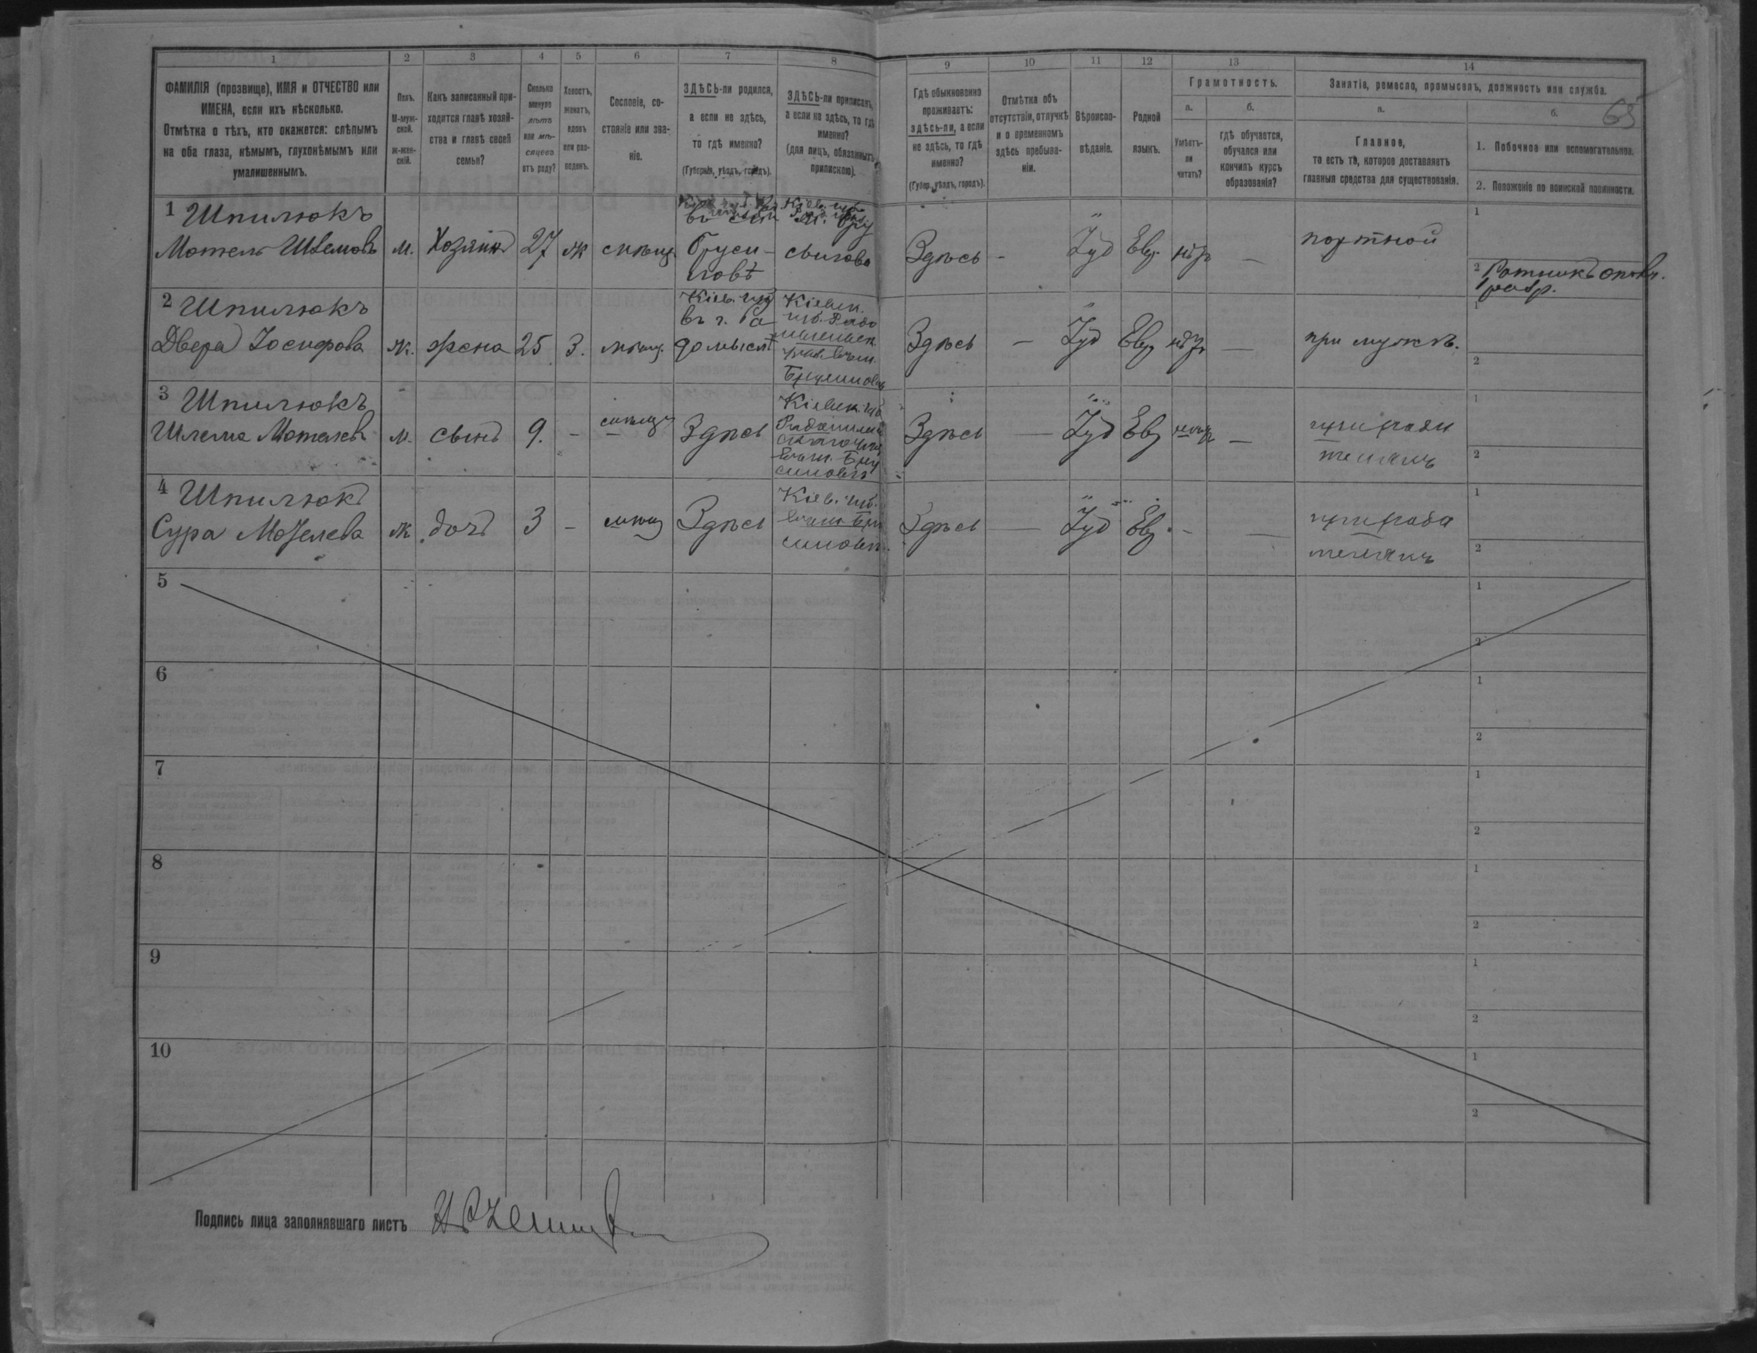 1
2
3
4
5
6
7
8
ФАМИЛІЯ (прозвище), ИМЯ и ОТЧЕСТВО или
ИМЕНА, если ихъ нѣсколько.
Отмѣтка о тѣхъ, кто окажется: слѣпымъ
на оба глаза, нѣмымъ, глухонѣмымъ или
умалишеннымъ.
Полъ.
М-муж-
ской.
ж-жен-
скій.
Какъ записанный при-
ходится главѣ хозяй-
ства и главѣ своей
семьи?
Сколько
минуло
лѣтъ
или мѣ-
сяцевъ
отъ роду?
Холостъ,
женатъ,
вдовъ
или раз-
веденъ.
Сословіе, со-
стояніе или зва-
ніе.
ЗДѢСЬ-ли родился,
а если не здѣсь,
то гдѣ именно?
(Губернія, уѣздъ, городъ).
ЗДѢСЬ-ли приписанъ,
а если не здѣсь, то гдѣ
именно?
(для лицъ, обязанныхъ
припискою).
9
10
11
12
13
14
65
Гдѣ обыкновенно
проживаетъ:
здѣсь-ли, а если
не здѣсь, то гдѣ
именно?
(Губер., уѣздъ, городъ).
Отмѣтка объ
отсутствіи, отлучкѣ
и о временномъ
здѣсь пребыва-
ніи.
Вѣроиспо-
вѣданіе.
Родной
языкъ.
Грамотность.
а.
Умѣетъ-
ли
читать?
б.
гдѣ обучается,
обучался или
кончилъ курсъ
образованія?
Занятіе, ремесло, промыселъ, должность или служба.
а.
Главное,
то есть то, которое доставляетъ
главныя средства для существованія.
б.
1. Побочное или вспомогательное.
2. Положеніе по воинской повинности.
1 Шпилюкъ
Мотель Шлемовъ м. Хозяинъ 27 ж мѣщ.
Бруси-
ловѣ
Здѣсь - Іуд Евр. нѣтъ — портной
1
2 Ратникъ опол.
разр.
2 Шпилюкъ
Двера Іосифова ж. жена 25 з. мѣщ.
Кіев. губ
въ г. Ра
домыслѣ
Кіевск.
губ. Радо
мысльск
Брусиловѣ
Здѣсь — Іуд Евр нѣтъ — при мужѣ.
1
2
3 Шпилюкъ
Шлема Мотелевъ м. сынъ 9. - мѣщ Здѣсь
Кіевск. губ
Брусиловѣ
Здѣсь — Іуд Евр нѣтъ — при роди
теляхъ
1
2
4 Шпилюкъ
Сура Мотелева ж. дочь 3 - мѣщ Здѣсь
Кіев. губ.
въ м. Бру
силовѣ.
Здѣсь — Іуд Евр. - — при роди
теляхъ
1
2
5
1
2
6
1
2
7
1
2
8
1
2
9
1
2
10
1
2
Подпись лица заполнявшаго листъ